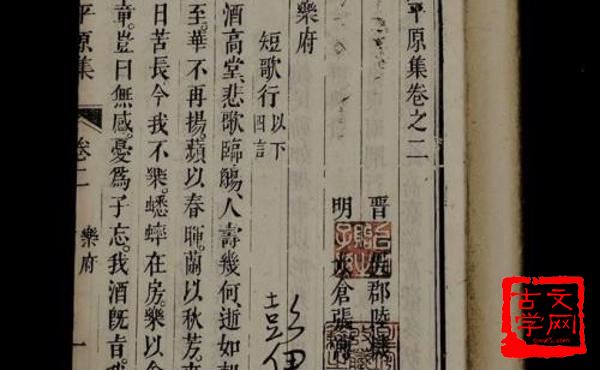 平原集卷之二
晉 郡陸
明 倉張
樂府
短歌行以下四言
酒高堂。悲歌臨觴。人壽幾何。逝如
至。華不再揚。蘋以春暉。蘭以秋芳。來
日苦長。今我不樂。蟋蟀在房。樂以
童。豈曰無感。憂爲子忘。我酒旣旨。
平原集 卷二 樂府 一
古文学网